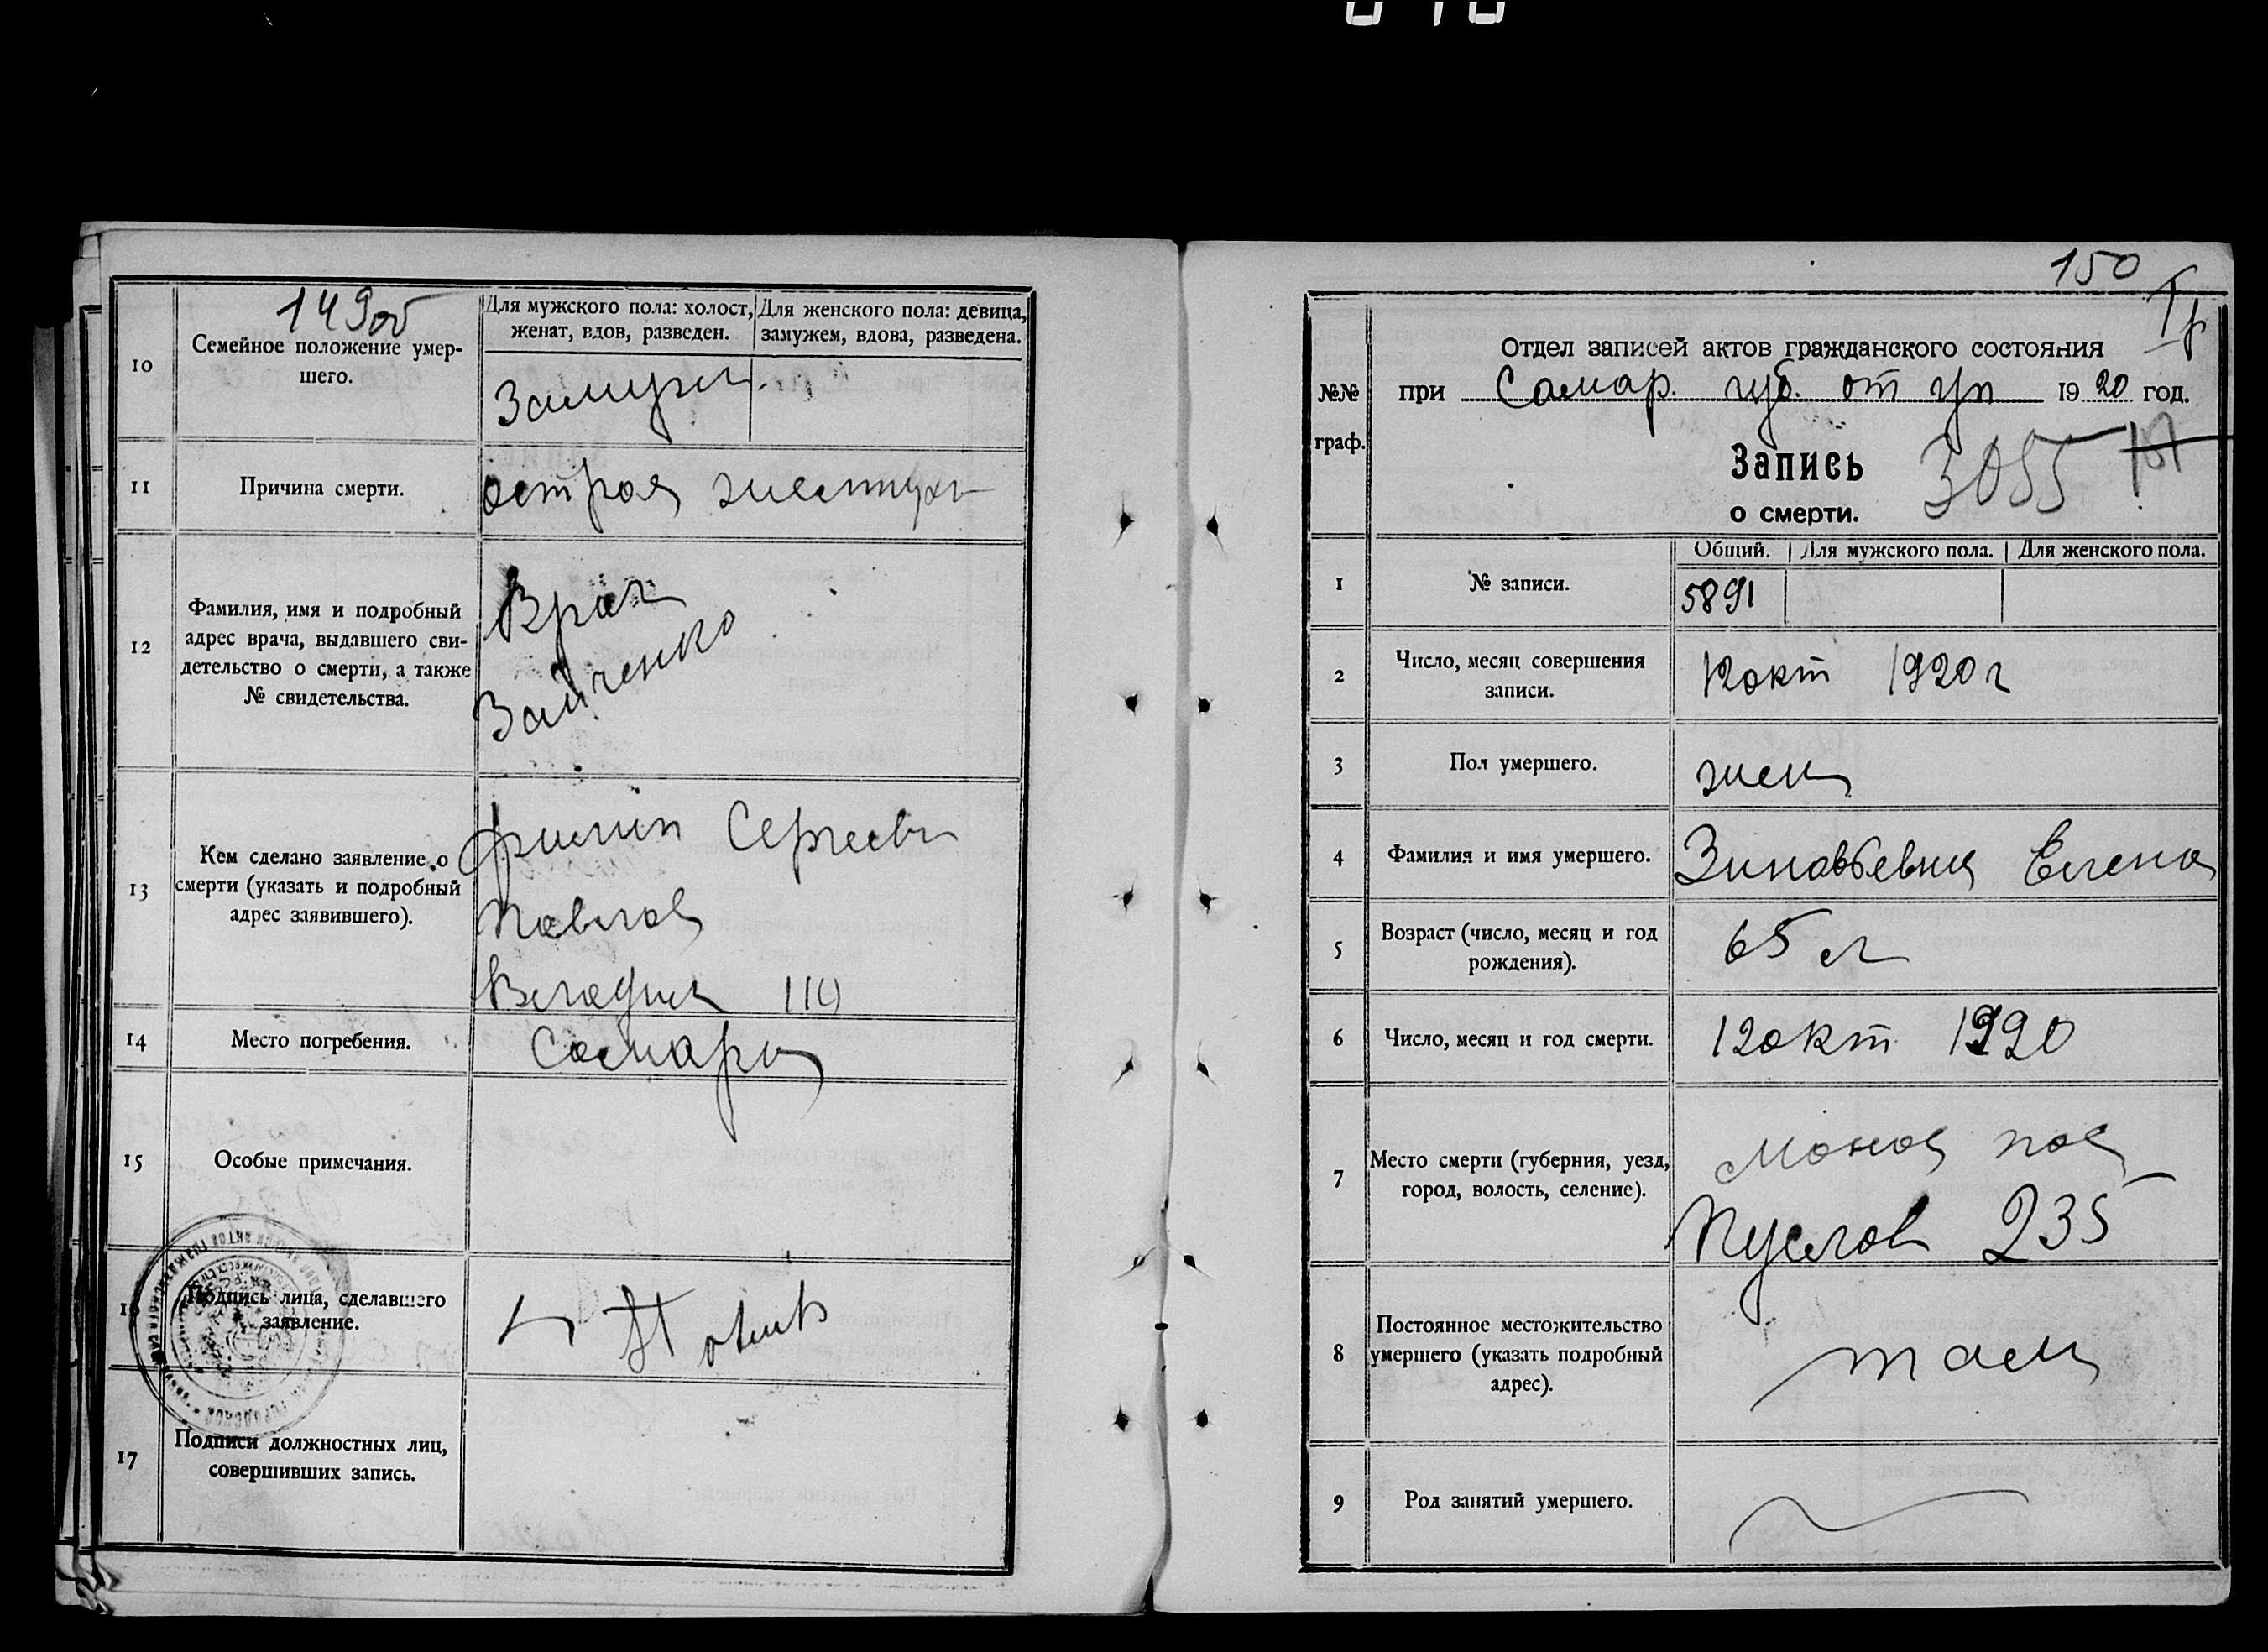 149об
10
Семейное положение умер-
шего.
Для мужского пола: холост,
женат, вдов, разведен.
Для женского пола: девица,
замужем, вдова, разведена.
Замуж
11
Причина смерти.
острая
12
Фамилия, имя и подробный
адрес врача, выдавшего сви-
детельство о смерти, а также
№ свидетельства.
Врач
Зайченко
13
Кем сделано заявление о
смерти (указать и подробный
адрес заявившего).
Филип Сергеев
Павлов
14
Место погребения.
Самара
15
Особые примечания.
16
Подпись лица, сделавшего
заявление.
17
Подписи должностных лиц,
совершивших запись.
150
№№
граф.
Отдел записей актов гражданского состояния
при Самар. губ. от уп 1920 год.
Запись 3055
о смерти.
Общий. Для мужского пола. Для женского пола.
1
№ записи.
5891
2
Число, месяц совершения
записи.
12 окт 1920 г
3
Пол умершего.
жен
4
Фамилия и имя умершего.
Зиновьевна Елена
5
Возраст (число, месяц и год
рождения).
65 л
6
Число, месяц и год смерти.
12 окт 1920
7
Место смерти (губерния, уезд,
город, волость, селение).
235
8
Постоянное местожительство
умершего (указать подробный
адрес).
там
9
Род занятий умершего.